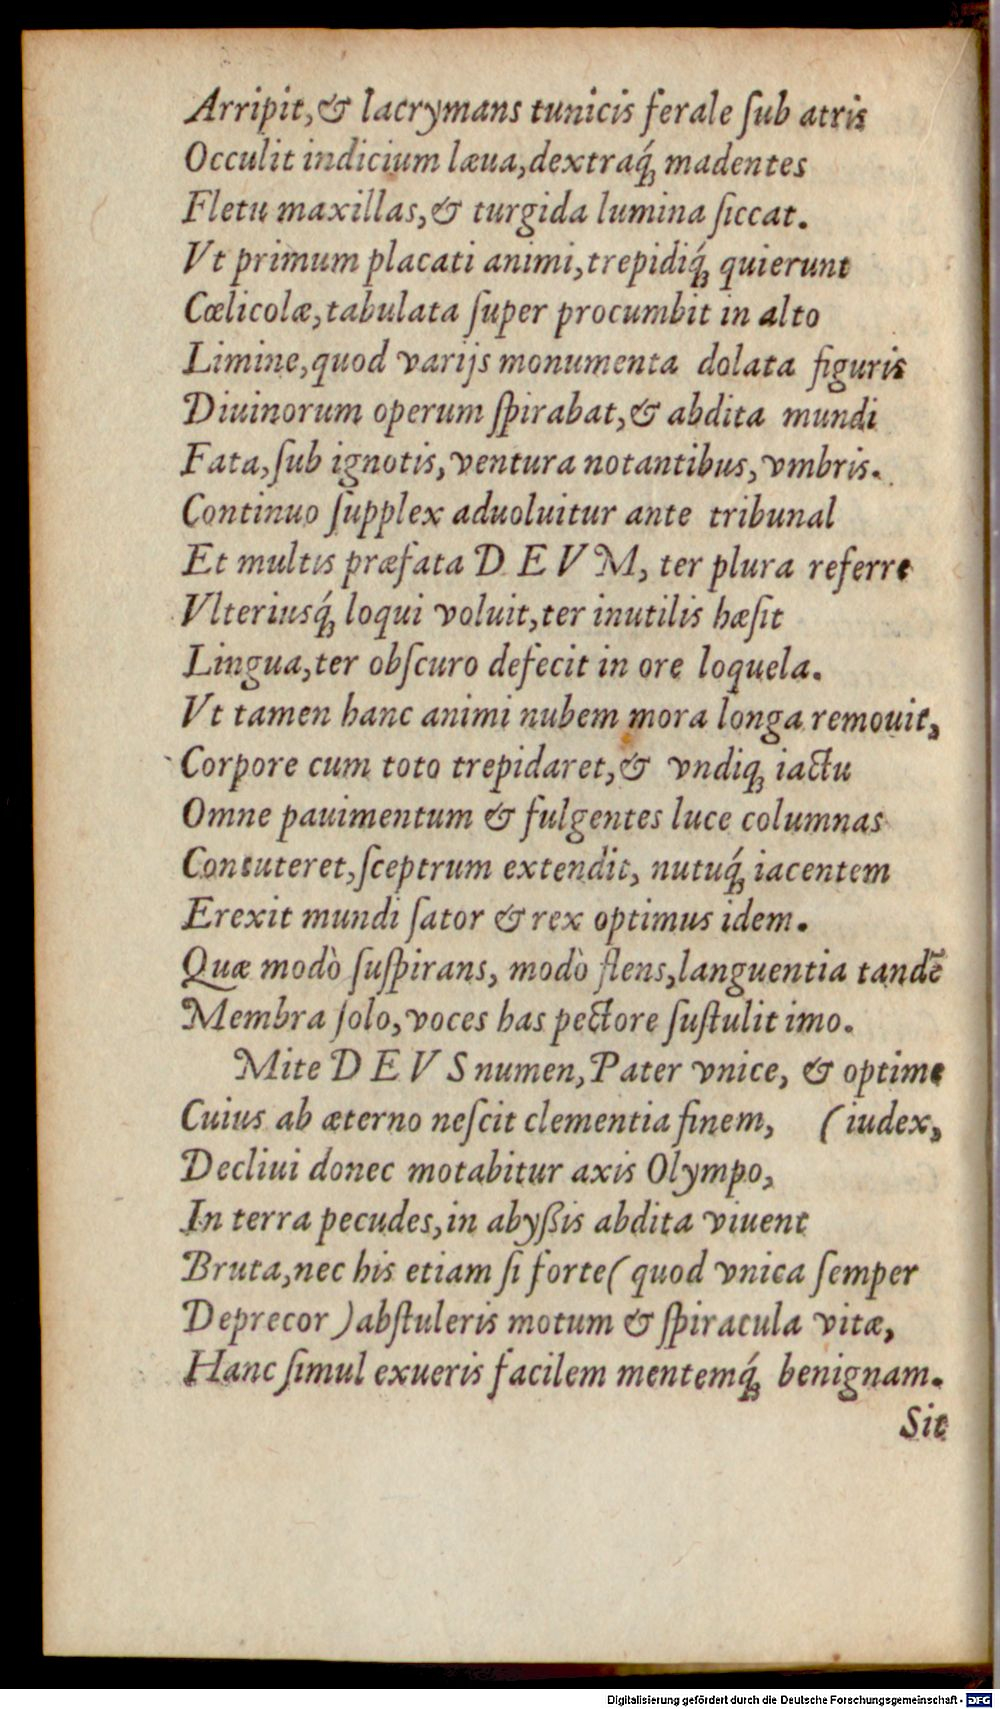 Arripit,& lacrymans tunicis ferale ſub atris
Occulit indicium læua,dextraq́ꝫ madentes
Fletu maxillas,& turgida lumina ſiccat.
Vt primum placati animi,trepidiq́ꝫ quierunt
Cœlicolæ,tabulata ſuper procumbit in alto
Limine,quod varijs monumenta dolata figuris
Diuinorum operum ſpirabat,& abdita mundi
Fata,ſub ignotis,ventura notantibus,vmbris.
Continuo ſupplex aduoluitur ante tribunal
Et multis præfata D E V M, ter plura referre
Vlteriusq́ꝫ loqui voluit,ter inutilis hæſit
Lingua,ter obſcuro defecit in ore loquela.
Vt tamen hanc animi nubem mora longa remouit,
Corpore cum toto trepidaret,& vndiqꝫ iactu
Omne pauimentum & fulgentes luce columnas
Concuteret,ſceptrum extendit, nutuq́ꝫ iacentem
Erexit mundi ſator & rex optimus idem.
Quæ modò ſuſpirans, modò flens,languentia tandẽ
Membra ſolo,voces has pectore ſuſtulit imo.
Mite D E V S numen,Pater vnice, & optime
Cuius ab æterno neſcit clementia finem, (iudex,
Decliui donec motabitur axis Olympo,
In terra pecudes,in abyßis abdita viuent
Bruta,nec his etiam ſi forte(quod vnica ſemper
Deprecor)abſtuleris motum & ſpiracula vitæ,
Hanc ſimul exueris facilem mentemq́ꝫ benignam.
Sit
Digitalisierung gefördert durch die Deutsche Forschungsgemeinschaft - DFG